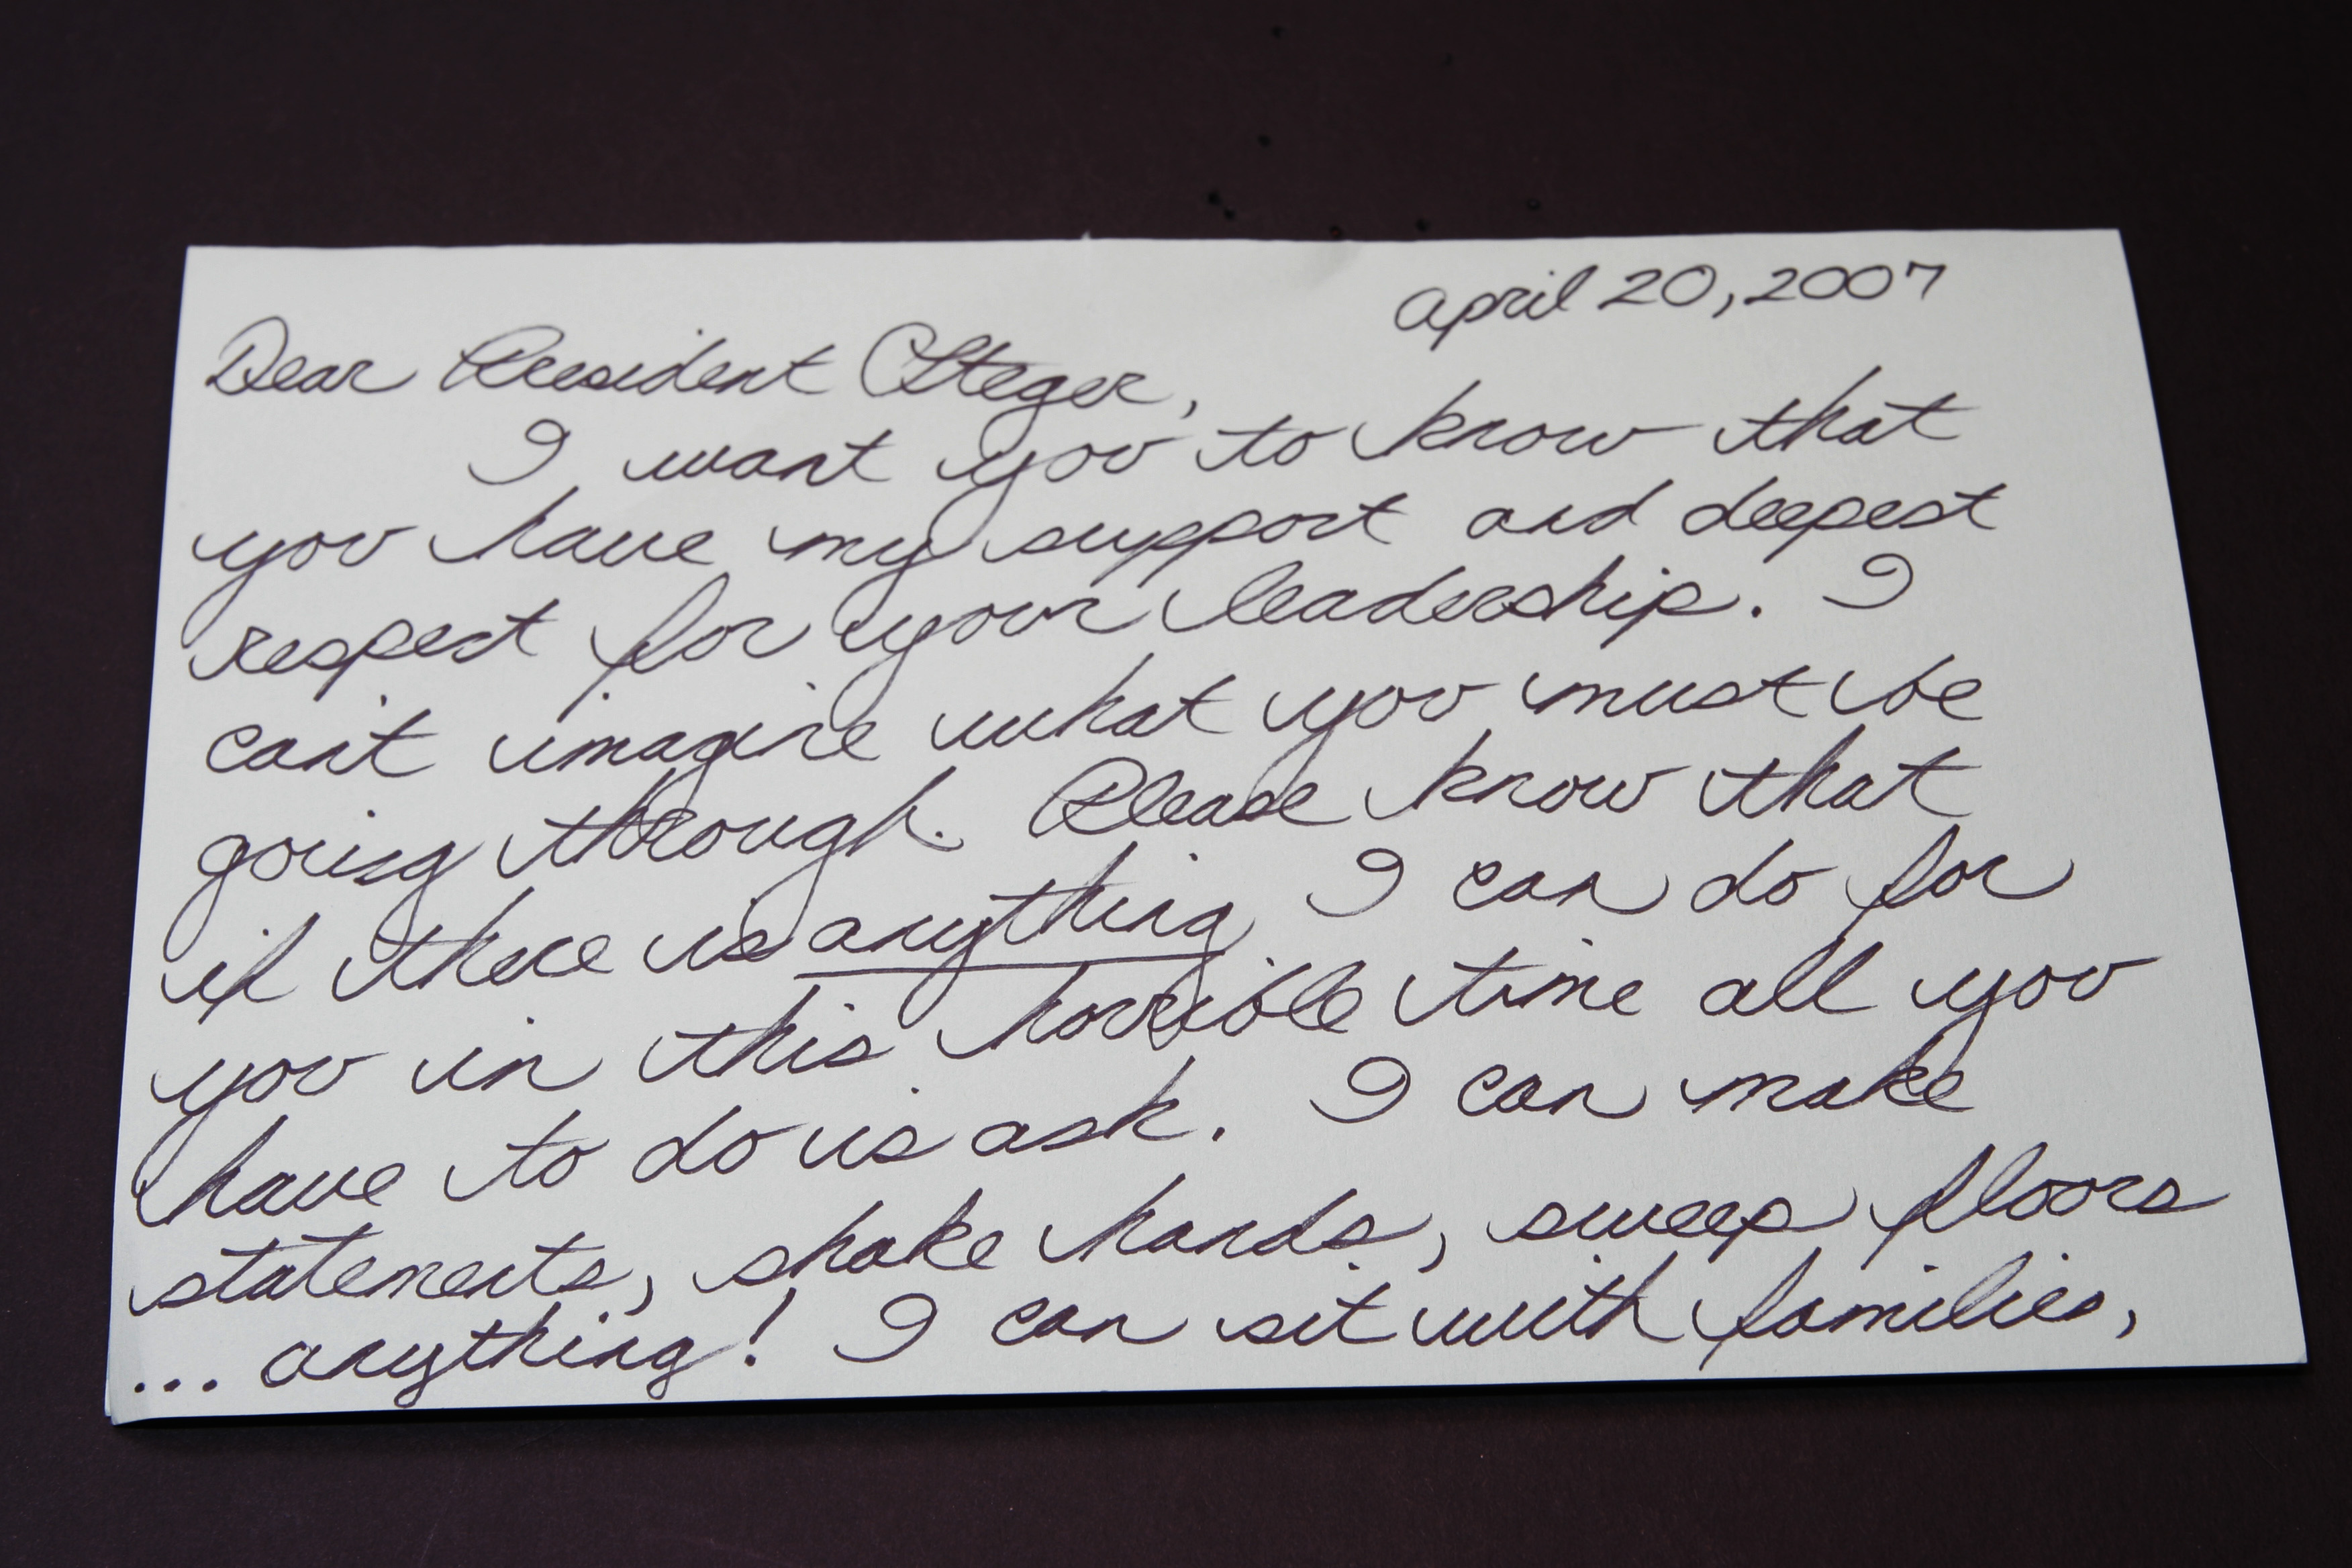 April 20, 2007
Dear President Steger,
I want you to know that
you have my support and deepest
respest for your leadership. I
can't imagine what you must be
going through. Please know that
if there is anything I can do for
you in this horrible time all you
have to do is ask. I can make
statements, shake hands, sweep floors
... anything! I can sit with families,